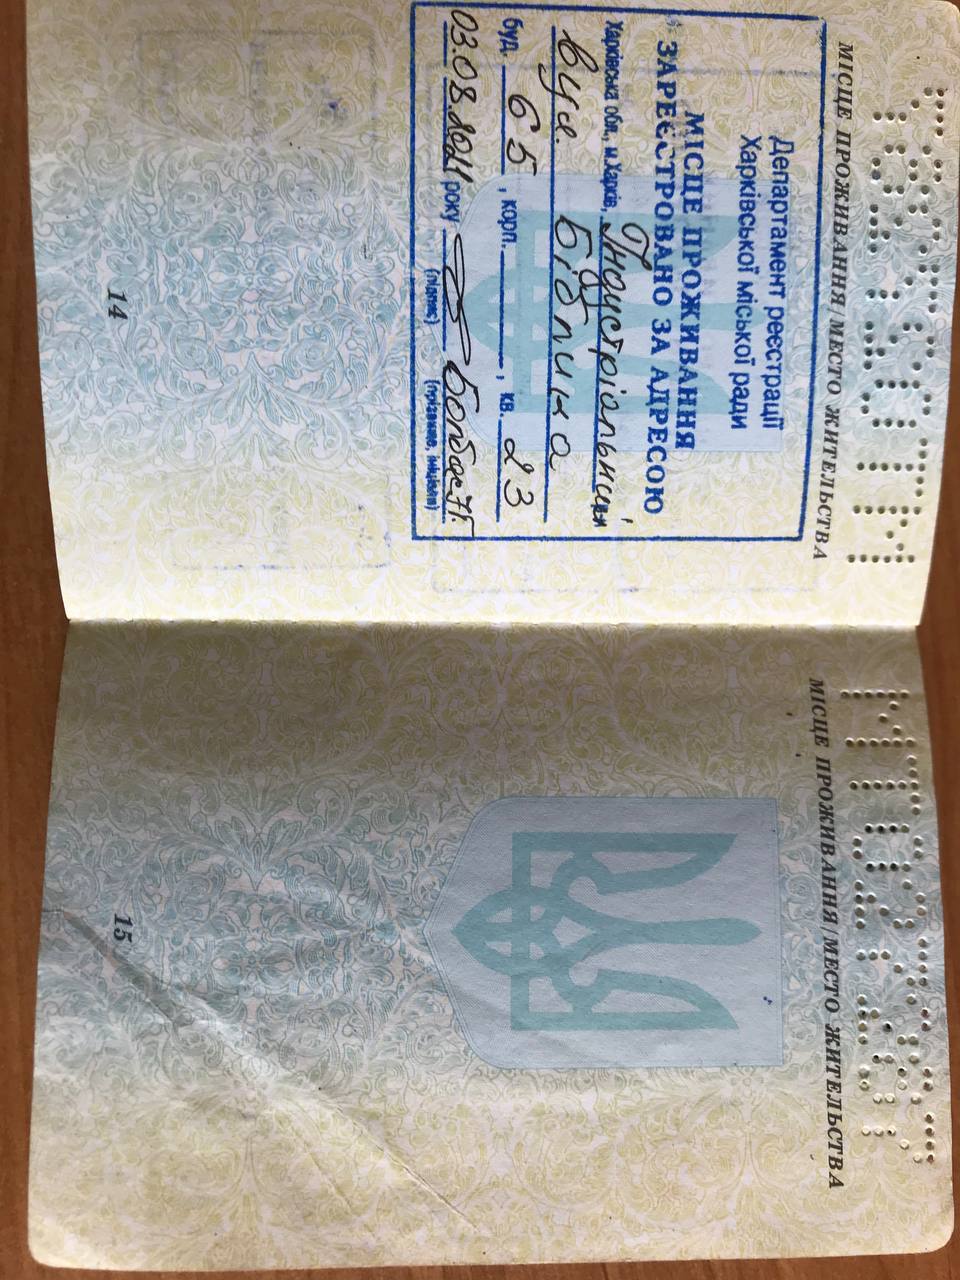 МІСЦЕ ПРОЖИВАННЯ/МЕСТО ЖИТЕЛЬСТВА
Департамент реєстрації
Харківської міської ради
МІСЦЕ ПРОЖИВАННЯ
ЗАРЕЄСТРОВАНО ЗА АДРЕСОЮ
Харківська обл., м.Харків, Індустріальний
вул. Біблика
буд. 65, корп. , кв. 23
03.08.2011 року
(підпис) (прізвище, ініціали)
14
МІСЦЕ ПРОЖИВАННЯ/МЕСТО ЖИТЕЛЬСТВА
15